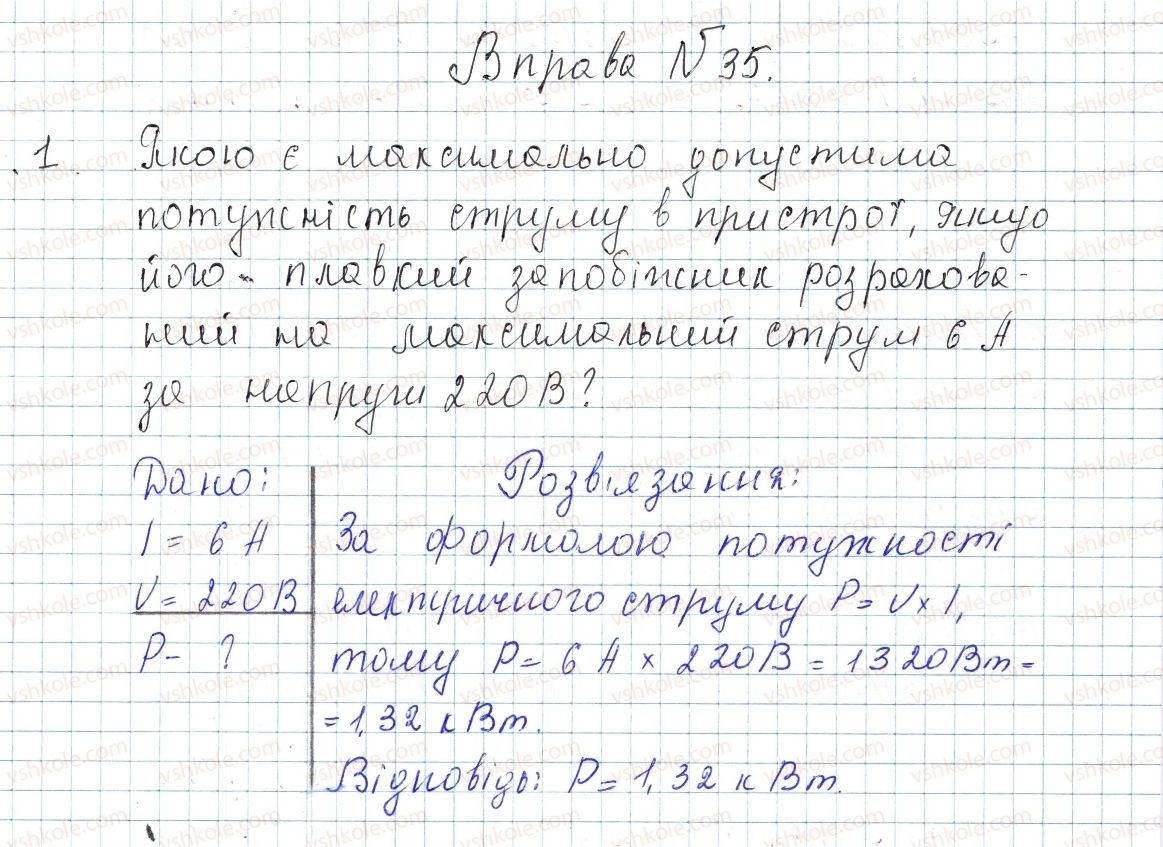 Вправа №35.
1 Якою є максимально допустима
потужність струму в пристрої, якщо
його плавкий запобіжник розрахова-
ний на максимальний струм 6 А
за напруги 220 В?
Дано: Розв'язання:
I = 6 А За формолою потужності
U = 220 В електричного струму P = U × I,
P - ? тому P = 6 А × 220 В = 1320 Вт =
= 1,32 кВт.
Відповідь: P = 1,32 кВт.